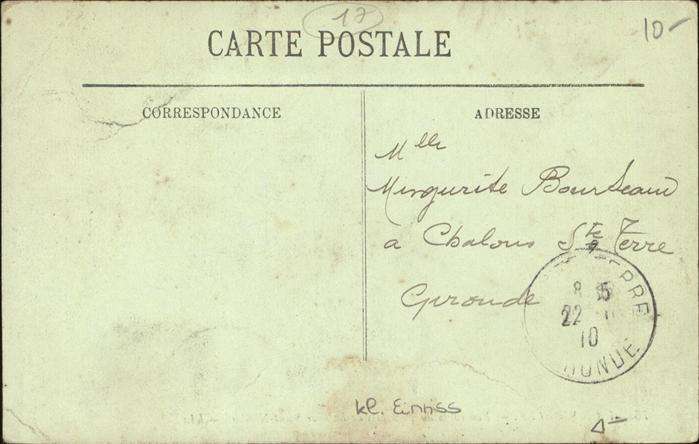 17
10-
CARTE POSTALE
CORRESPONDANCE
ADRESSE
Mlle
Mingurite Bourseaud
à Chalons Ste Terre
Gironde
TERRE
8 35
22
10
RONDE
kl. Einriss